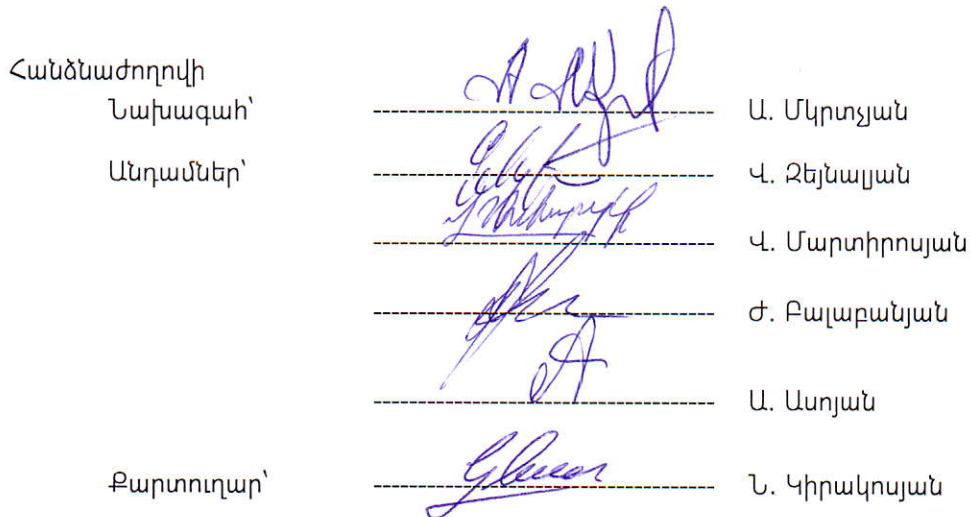 Հանձնաժողովի
Նախագահ՝ Ա. Մկրտչյան
Անդամներ՝ Վ. Զեյնալյան
Վ. Մարտիրոսյան
Ժ. Բալաբանյան
Ա. Ասոյան
Քարտուղար՝ Ն. Կիրակոսյան